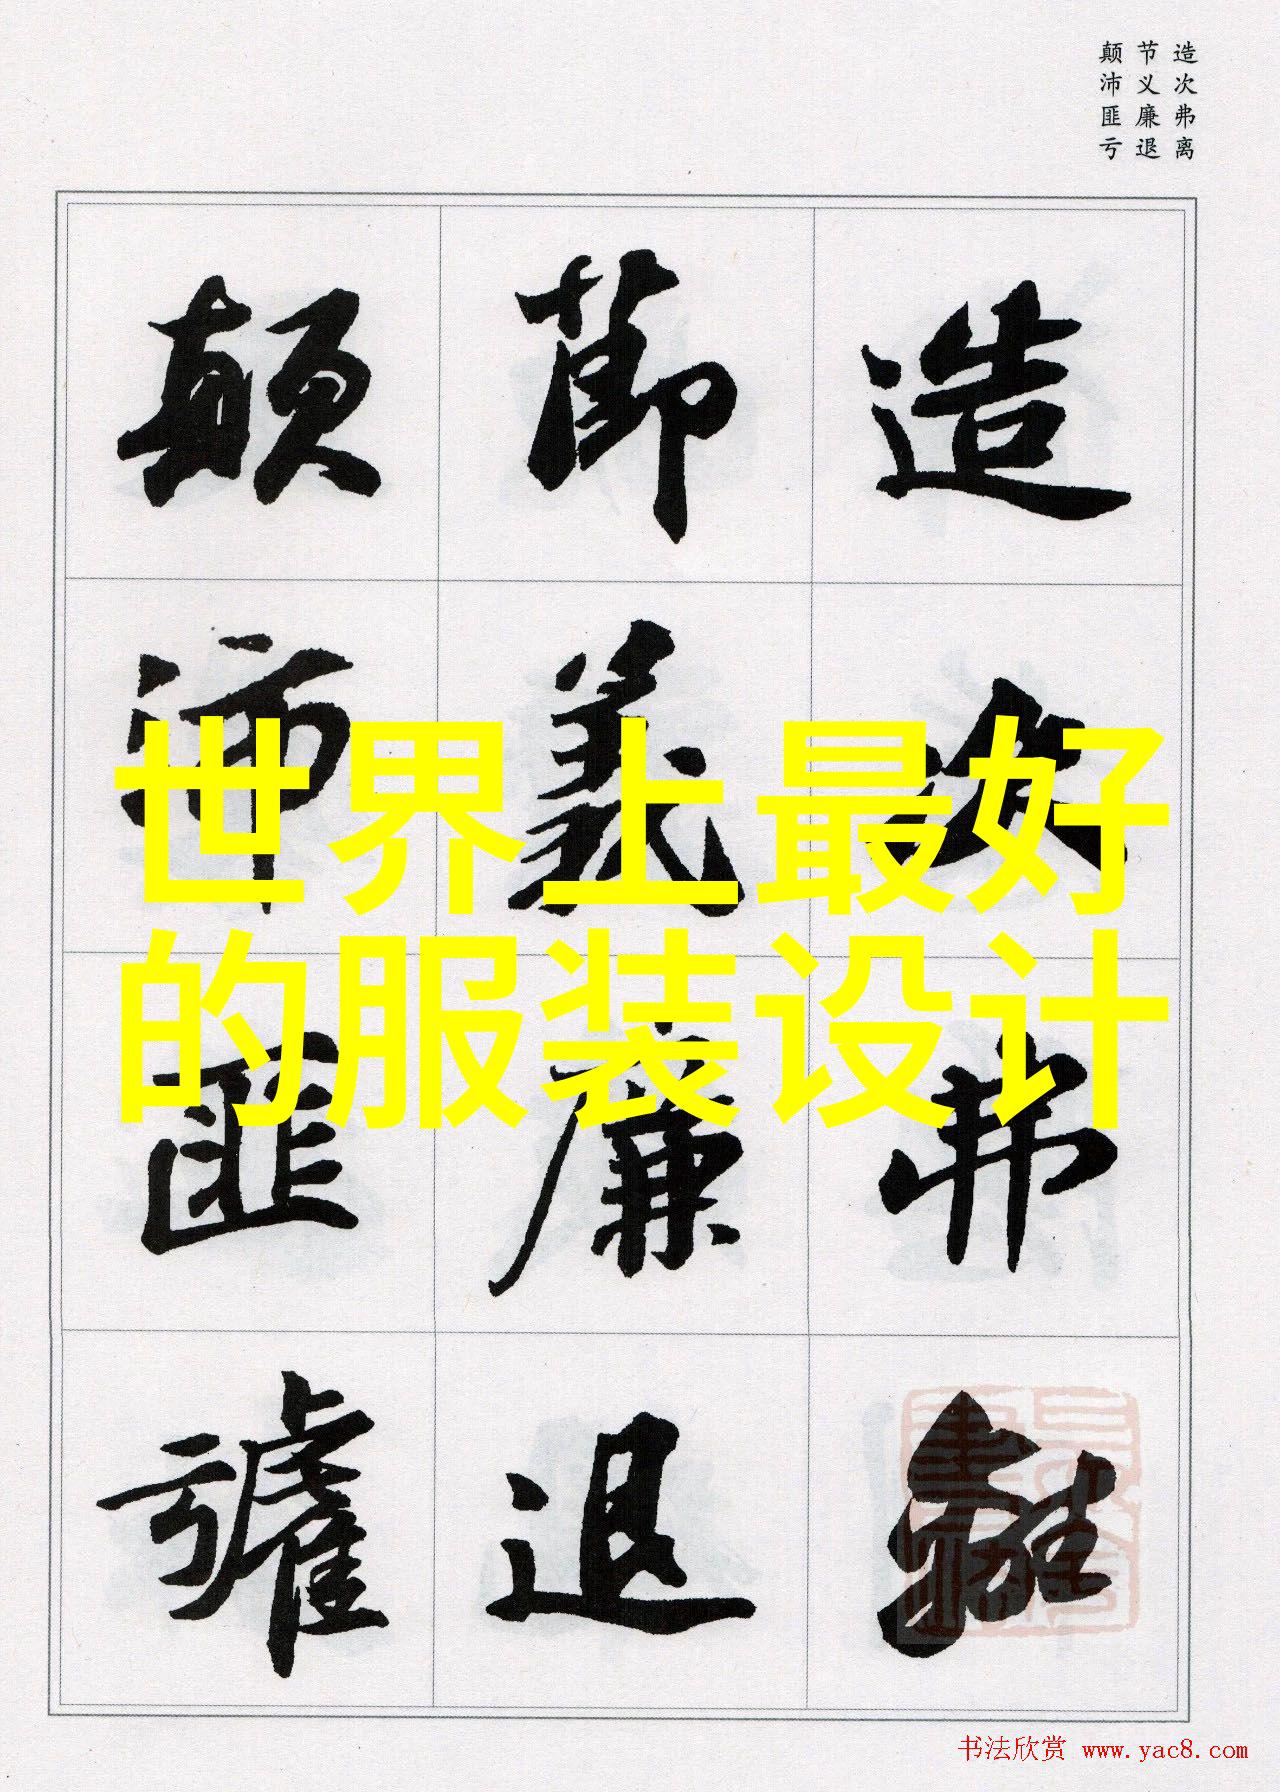 造次弗离
节义廉退
颠沛匪亏
造次弗離
節義廉退
顛沛匪虧
世界上最好
的服装设计
书法欣赏 www.yac8.com